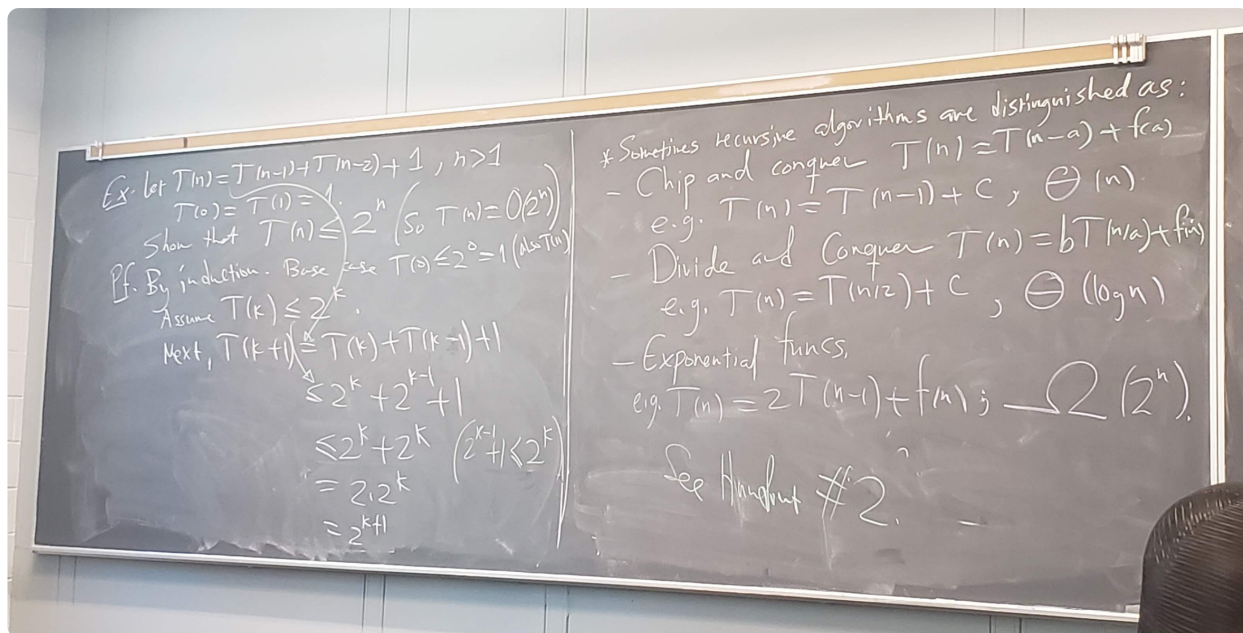 Ex. Let T(n) = T(n-1) + T(n-2) + 1, n>1
T(0) = T(1) = 1.
Show that T(n) ≤ 2^n (so T(n) = O(2^n))
Pf. By induction. Base case T(0) ≤ 2^0 = 1 (also T(1))
Assume T(k) ≤ 2^k.
Next, T(k+1) = T(k) + T(k-1) + 1
≤ 2^k + 2^{k-1} + 1
≤ 2^k + 2^k (2^{k-1}+1 ≤ 2^k)
= 2.2^k
= 2^{k+1}
* Sometimes recursive algorithms are distinguished as:
- Chip and conquer T(n) = T(n-a) + f(a)
e.g. T(n) = T(n-1) + C, Θ(n)
- Divide and Conquer T(n) = bT(n/a) + f(n)
e.g. T(n) = T(n/2) + C, Θ(log n)
- Exponential funcs.
e.g. T(n) = 2T(n-1) + f(n); Ω(2^n).
See Handout #2.